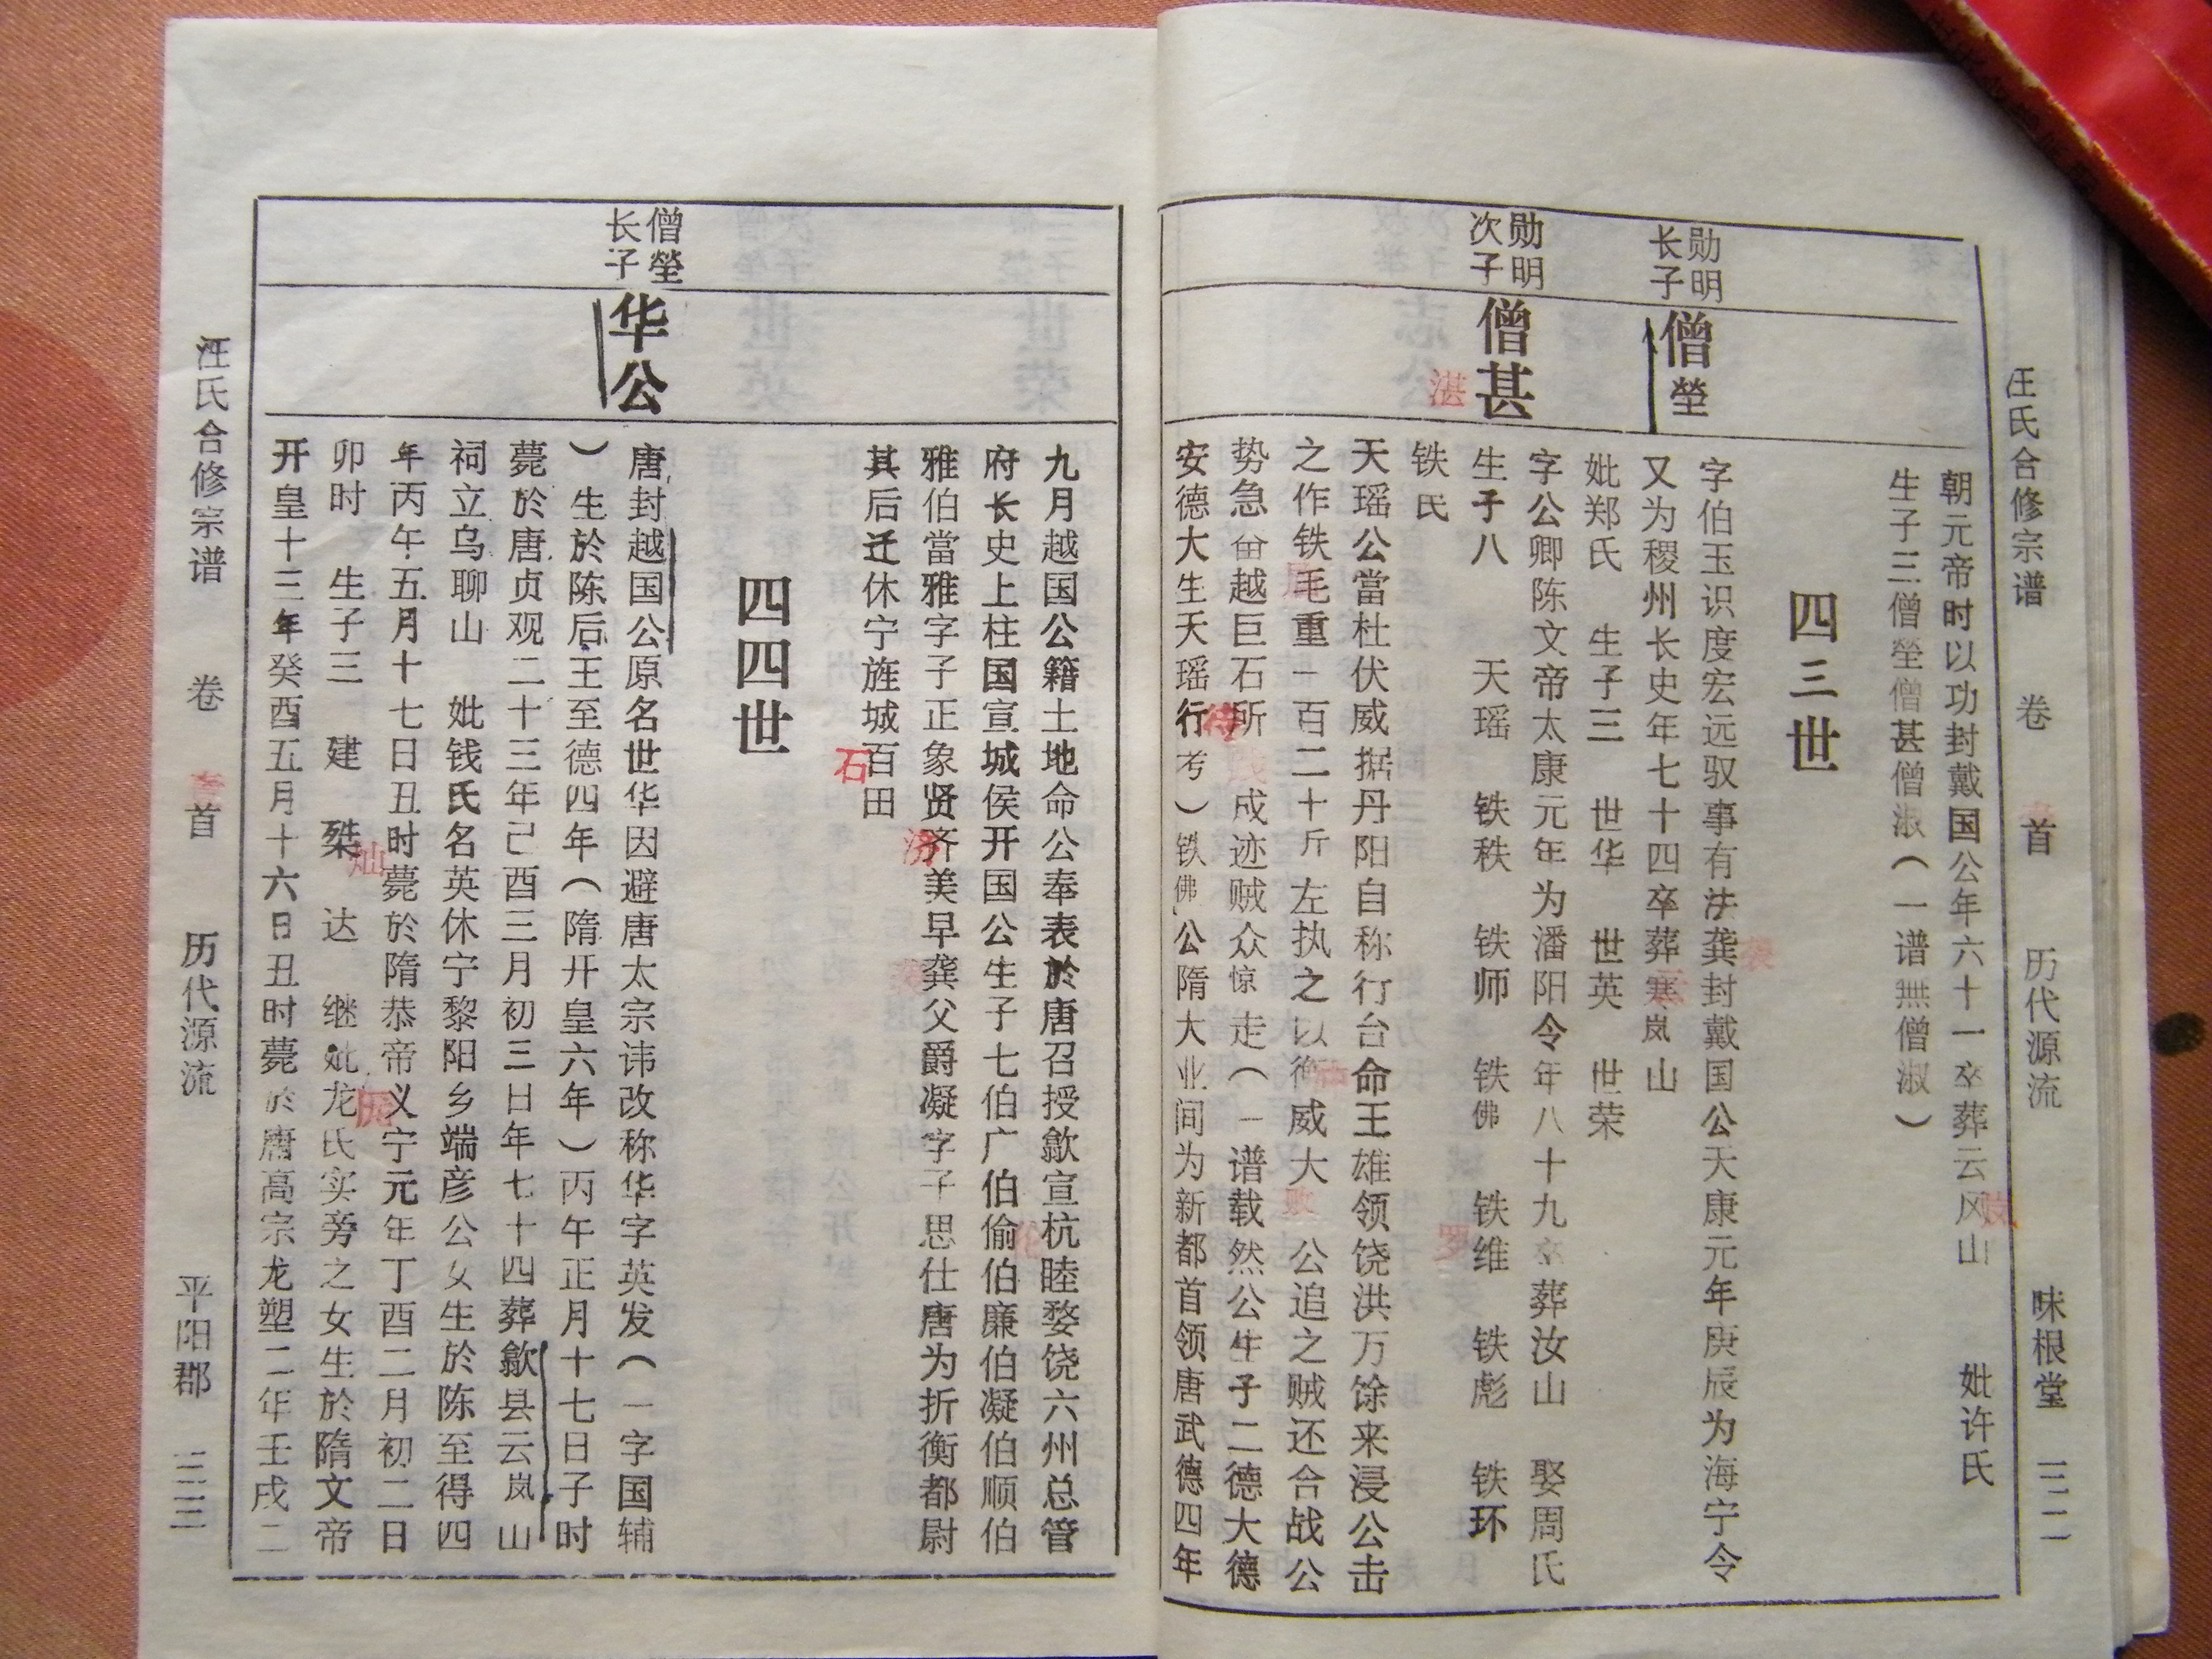 汪氏合修宗谱 卷首 历代源流 味根堂 三二
朝元帝时以功封戴国公年六十一卒葬云风山 妣许氏
岚
生子三僧塋僧甚僧淑(一谱無僧淑)
四三世
勋明
长子
僧塋
字伯玉识度宏远驭事有法龚封戴国公天康元年庚辰为海宁令
袭
又为稷州长史年七十四卒葬寒岚山
云
妣郑氏 生子三 世华 世英 世荣
勋明
次子
僧甚
湛
字公卿陈文帝太康元年为潘阳令年八十九卒葬汝山 娶周氏
生子八 天瑶 铁秩 铁师 铁佛 铁维 铁彪 铁环
铁民
罗
天瑶公當杜伏威据丹阳自称行台命王雄领饶洪万馀来浸公击
之作铁毛重一百二十斤左执之以 威大 公追之贼还合战公
败
势急 越巨石所 成迹贼众惊走(一谱载然公生子二德大德
安德大生天瑶行考)铁佛公隋大业间为新都首领唐武德四年
待
九月越国公籍土地命公奉表於唐召授歙宣杭睦婺饶六州总管
府长史上柱国宣城侯开国公生子七伯广伯偷伯廉伯凝伯顺伯
伦
雅伯當雅字子正象贤齐美早龚父爵凝字子思仕唐为折衡都尉
济
其后迁休宁旌城百田
石
四四世
僧塋
长子
华公
唐封越国公原名世华因避唐太宗讳改称华字英发(一字国辅
)生於陈后王至德四年(隋开皇六年)丙午正月十七日子时
薨於唐贞观二十三年己酉三月初三日年七十四葬歙县云岚山
祠立乌聊山 妣钱氏名英休宁黎阳乡端彦公女生於陈至得四
年丙午五月十七日丑时薨於隋恭帝义宁元年丁酉二月初二日
卯时 生子三 建 桀 达 继妣龙氏实旁之女生於隋文帝
灿
开皇十三年癸酉五月十六日丑时薨於唐高宗龙塑二年壬戌二
汪氏合修宗谱 卷首 历代源流 平阳郡 三三